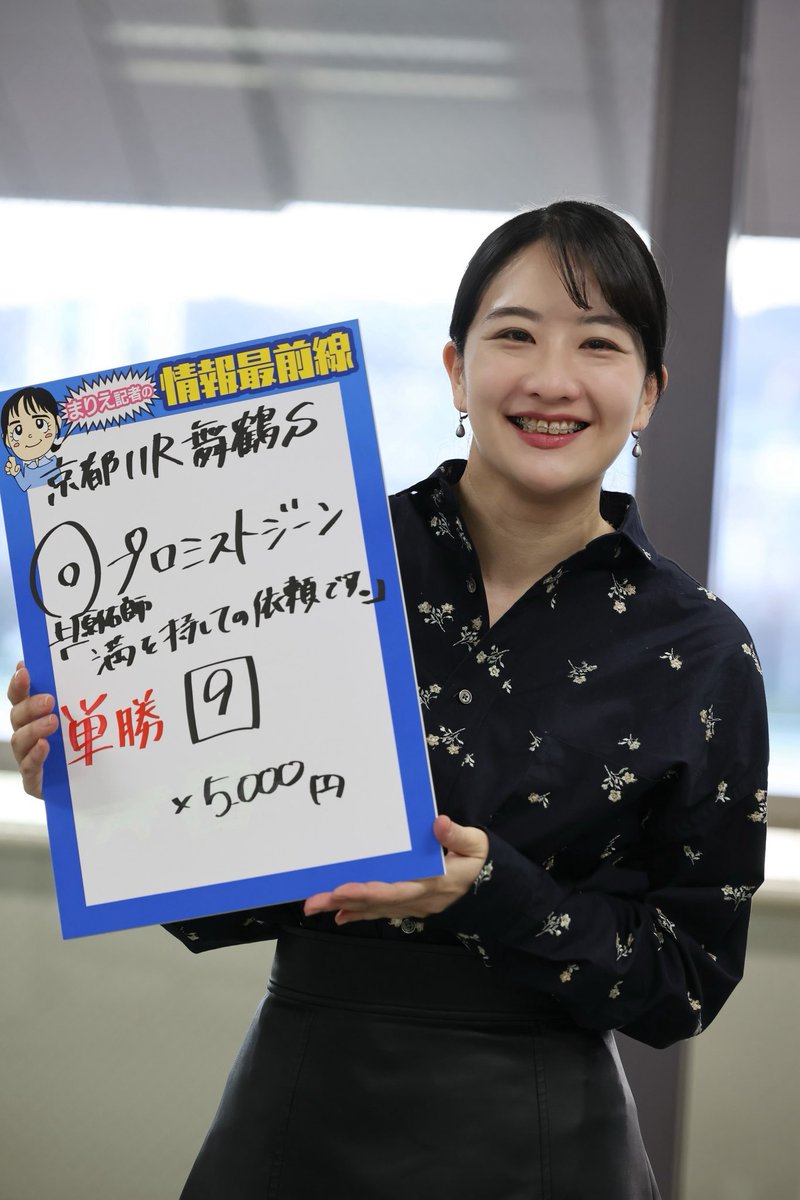 まりえ記者の
情報最前線
京都11R 舞鶴S
◎プロミストジーン
「満を持しての依頼です。」
単勝 9
×5.000円